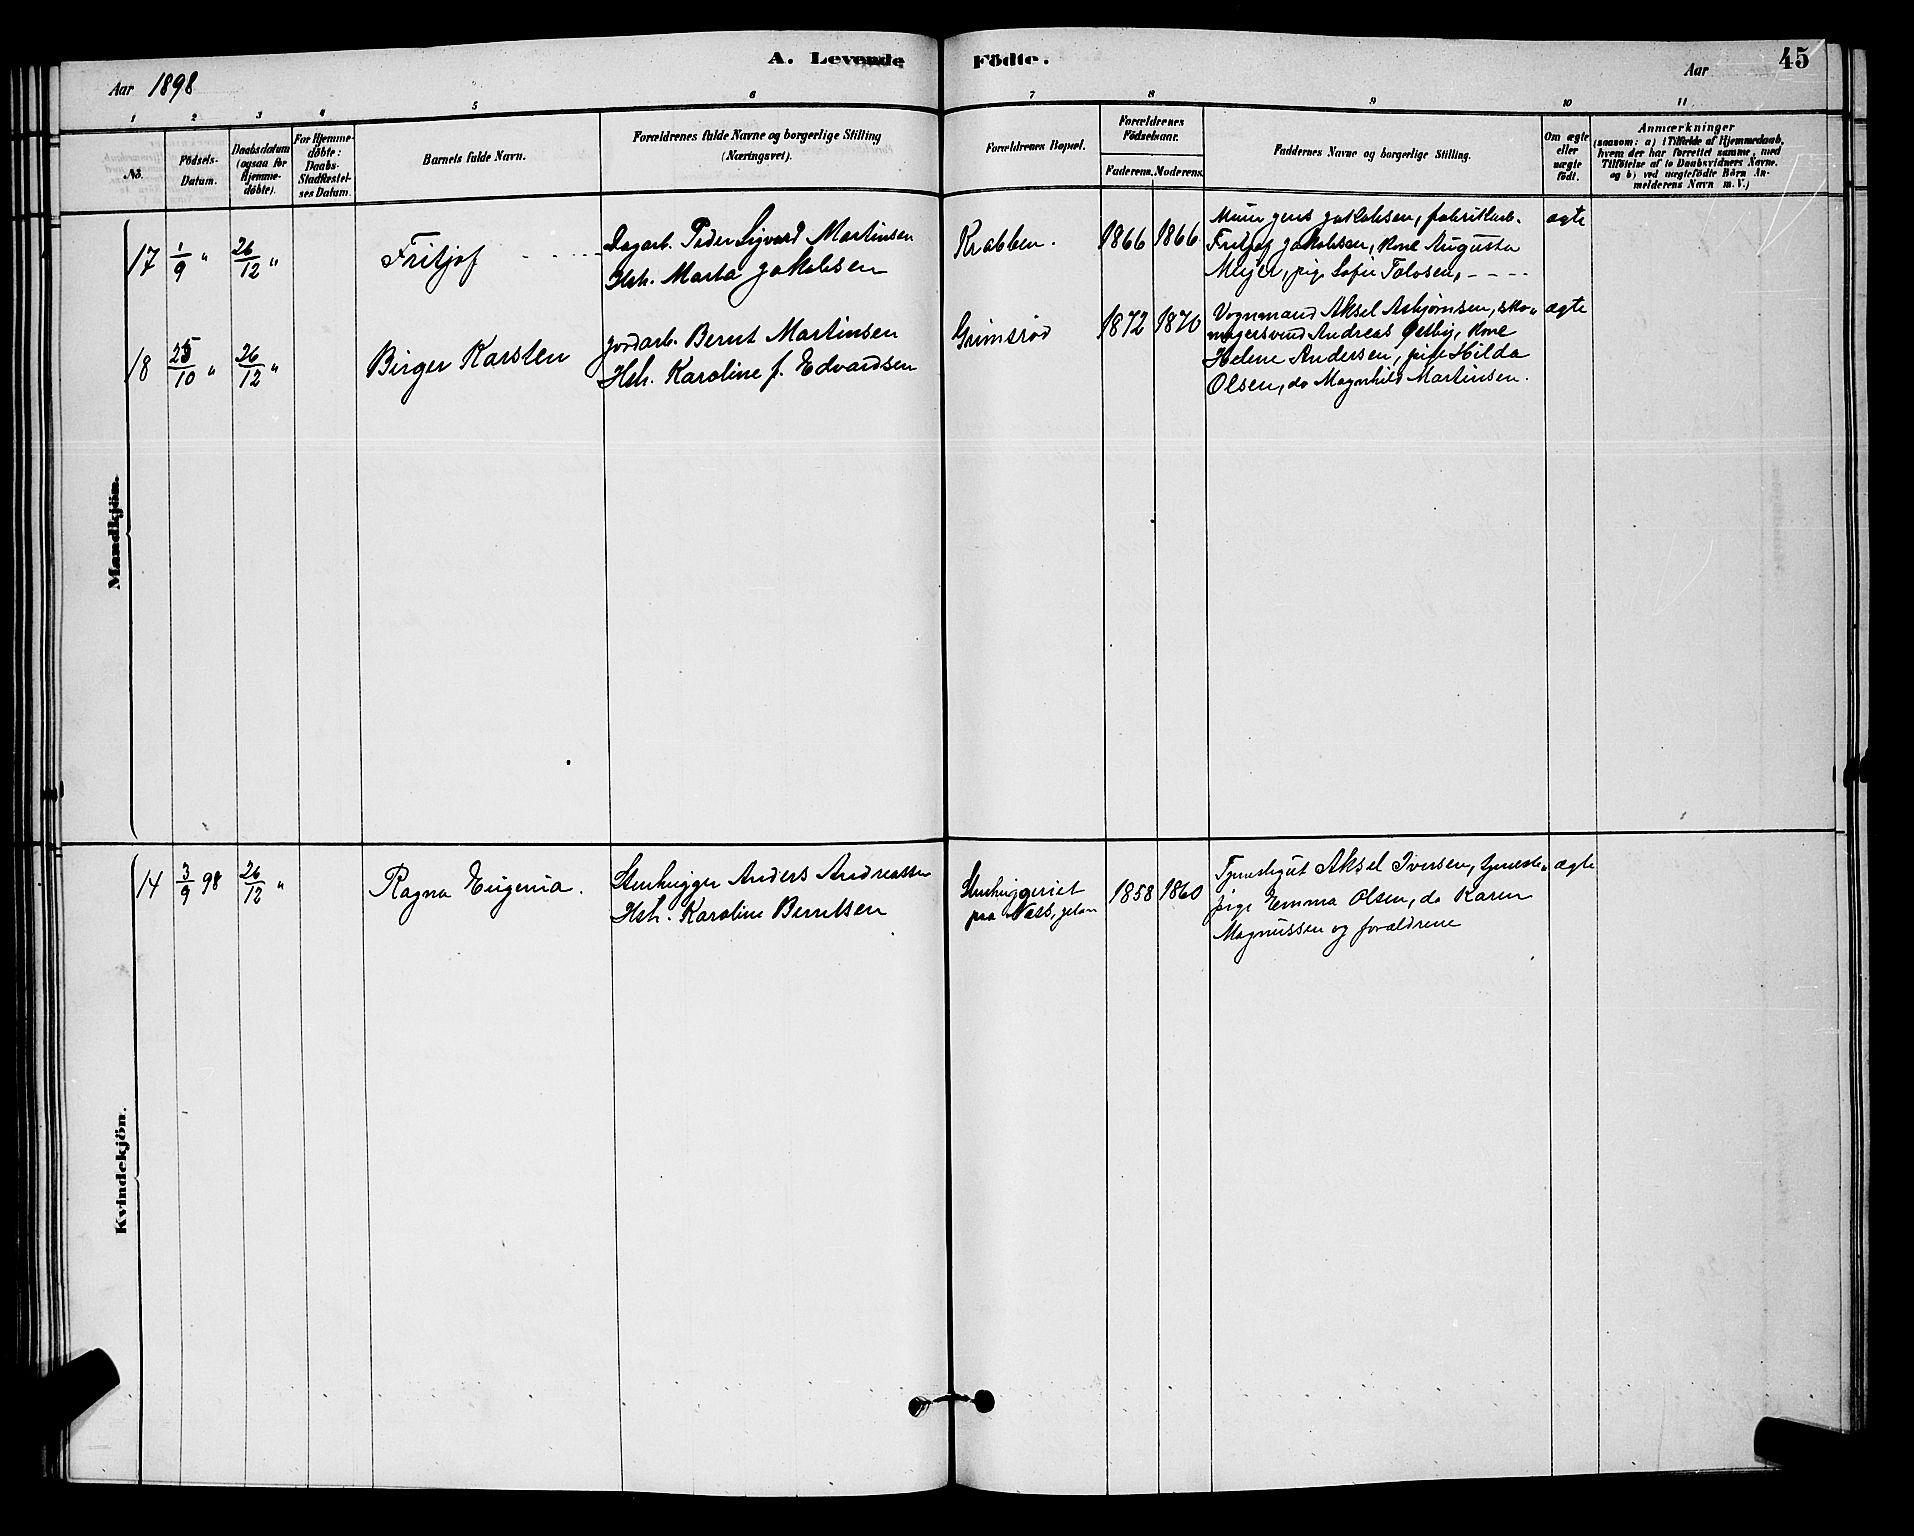 A. Levende Födte.
45
Aar 1898
Aar
1 2 3 4 5 6 7 8 9 10 11
No.
Födsels-
Datum.
Daabsdatum
(ogsaa for
Hjemme-
døbte).
For Hjemme-
døbte:
Daabs-
Stadfæstel-
ses Datum.
Barnets fulde Navn.
Forældrenes fulde Navne og borgerlige Stilling
(Næringsvei).
Forældrenes Bopæl.
Forældrenes
Födselsaar.
Faderens.
Moderens.
Faddernes Navne og borgerlige Stilling.
Om ægte
eller
uægte
født.
Anmærkninger
(saasom: a) i Tilfælde af Hjemmedaab,
hvem der har forrettet samme, med
Tilføielse af to Daabsvidners Navne.
og b) ved uægtefødte Börn An-
melderens Navn m. V.)
Mandkjön.
17 1/9 " 26/12 " Fritjof
Dagarb. Peder Sigvard Martinsen
Hst. Marta Jakobsen
Krabben.
1866 1866
Murer Jens Jakobsen, fabrikarb.
Fritjof Jakobsen, kone Augusta
Meyer, pige Sofie
ægte
18 25/10 " 26/12 " Birger Karsten
Jordarb. Bernt Martinsen
Hst. Karoline f. Edvardsen
Grimsrød
1872 1870
Vognmand Aksel Asbjørnsen, sko-
magersvend Andreas Østby, kone
Helene Andersen, pige Hilda
Olsen, do Magnhild Martinsen.
ægte
Kvindekjön.
14 3/9 98 26/12 " Ragna Eugenia.
Stenhugger Anders Andreassen
Hst. Karoline Berntsen
Stenhuggeriet
paa Næss,
1858 1860
Tjenestgut Aksel Iversen, tjeneste-
pige Emma Olsen, do Karen
Magnussen og forældrene
ægte